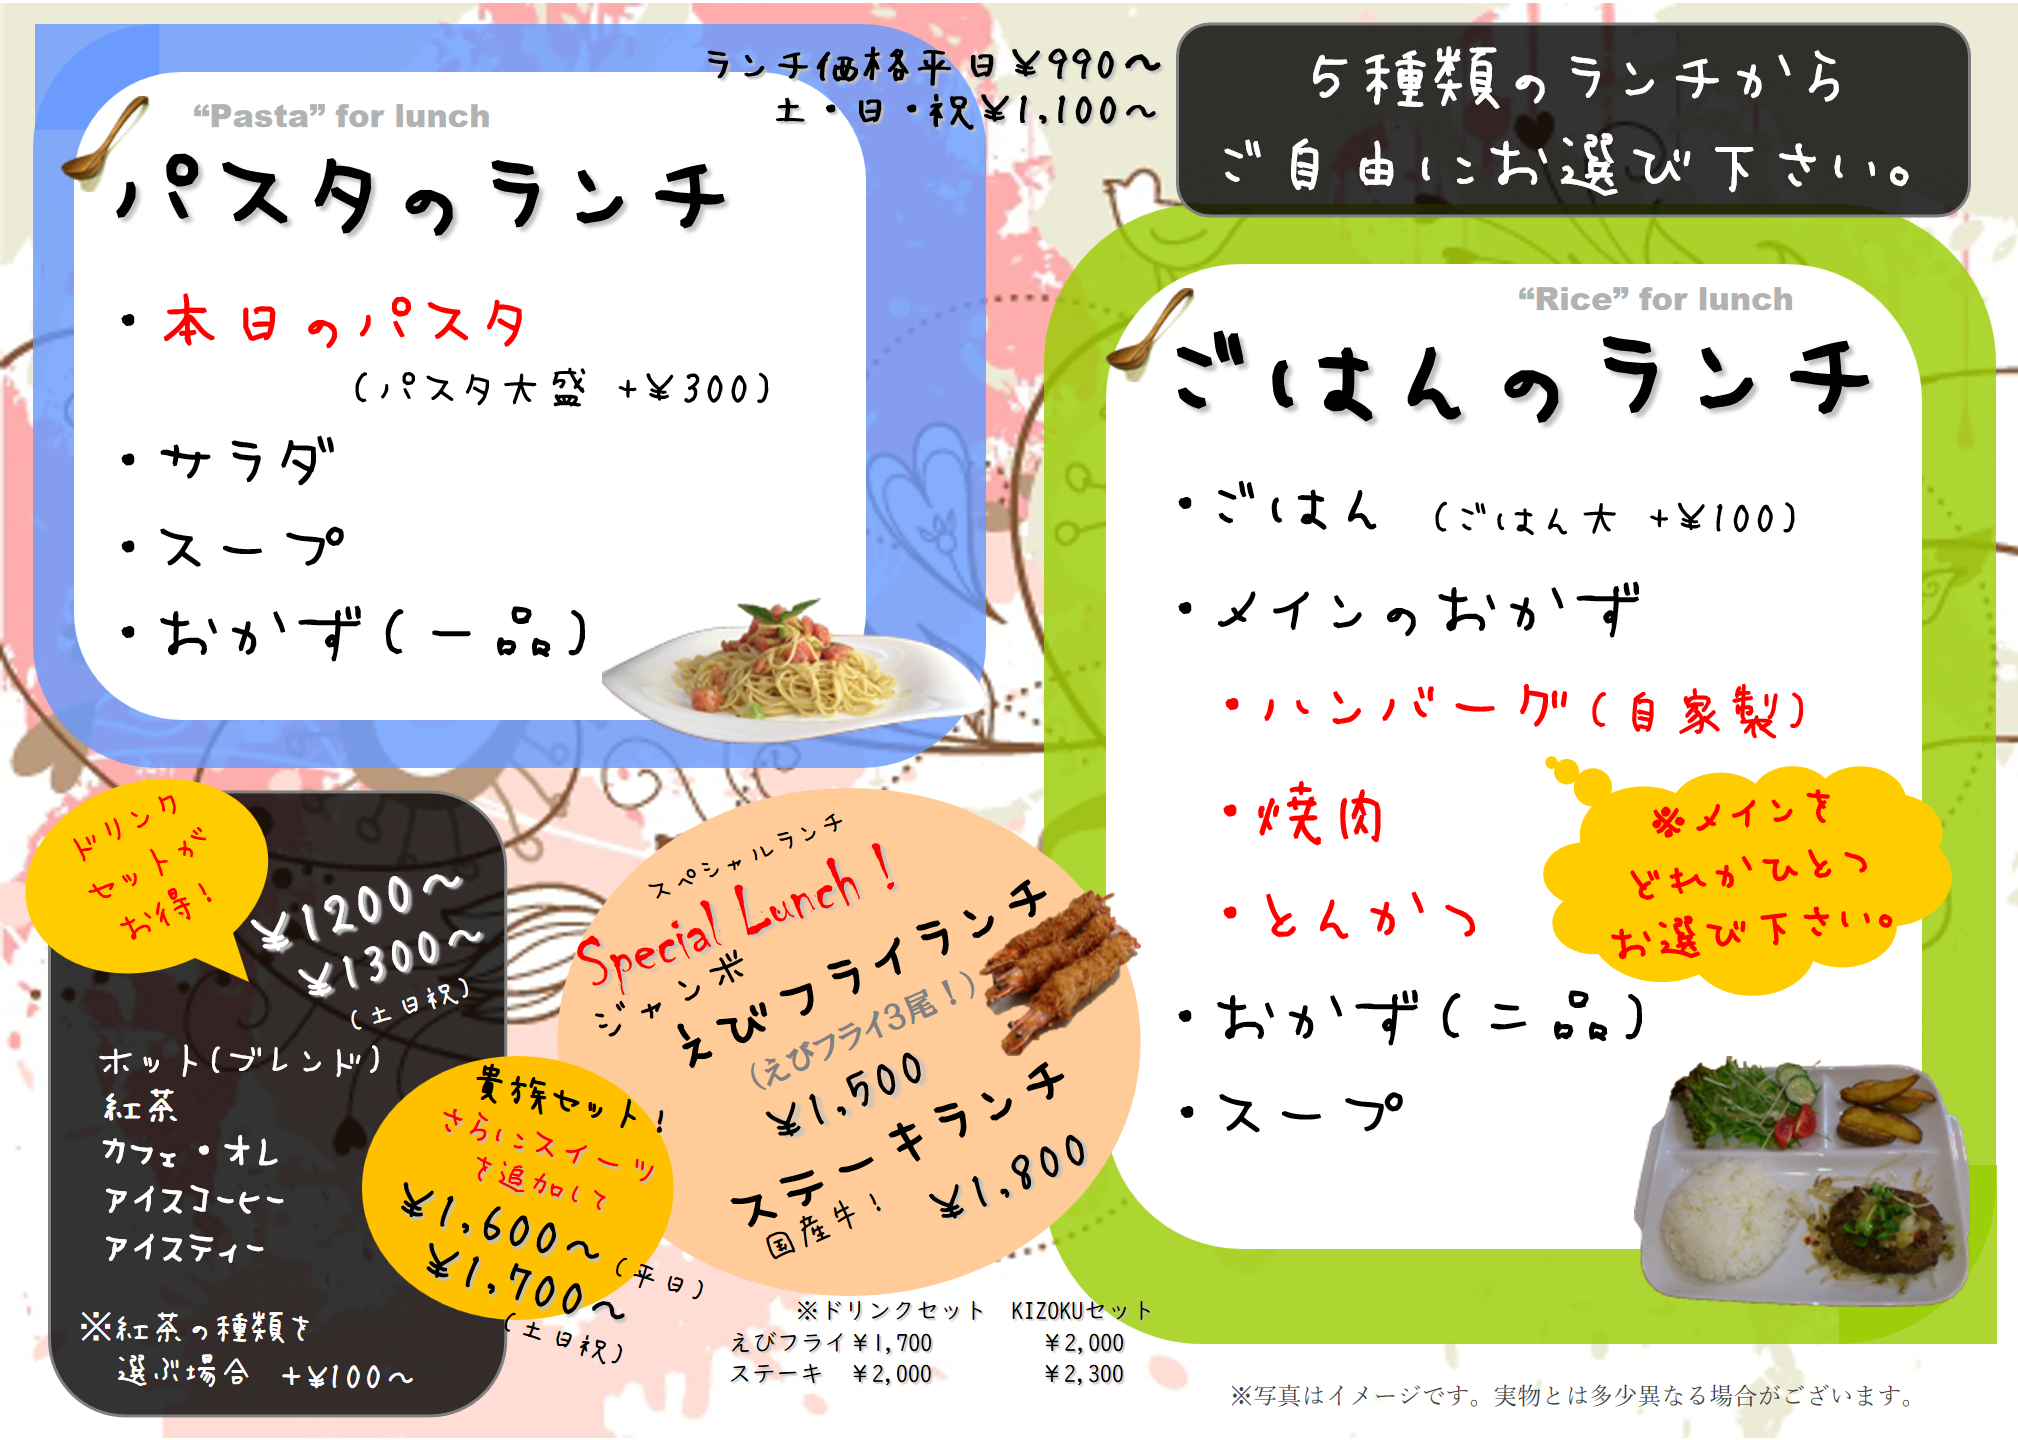 ランチ価格平日¥990～
土・日・祝¥1,100～
5種類のランチから
ご自由にお選び下さい。
“Pasta” for lunch
パスタのランチ
・本日のパスタ
(パスタ大盛 +¥300)
・サラダ
・スープ
・おかず(一品)
“Rice” for lunch
ごはんのランチ
・ごはん (ごはん大 +¥100)
・メインのおかず
・ハンバーグ(自家製)
・焼肉
・とんかつ
※メインを
どれかひとつ
お選び下さい。
・おかず(二品)
・スープ
ドリンク
セットが
お得！
¥1200～
¥1300～
(土日祝)
ホット(ブレンド)
紅茶
カフェ・オレ
アイスコーヒー
アイスティー
※紅茶の種類を
選ぶ場合 +¥100～
貴族セット！
さらにスイーツ
を追加して
¥1,600～
(平日)
¥1,700～
(土日祝)
スペシャルランチ
Special Lunch！
ジャンボ
えびフライランチ
(えびフライ3尾！)
¥1,500
ステーキランチ
国産牛！ ¥1,800
※ドリンクセット KIZOKUセット
えびフライ¥1,700 ¥2,000
ステーキ ¥2,000 ¥2,300
※写真はイメージです。実物とは多少異なる場合がございます。